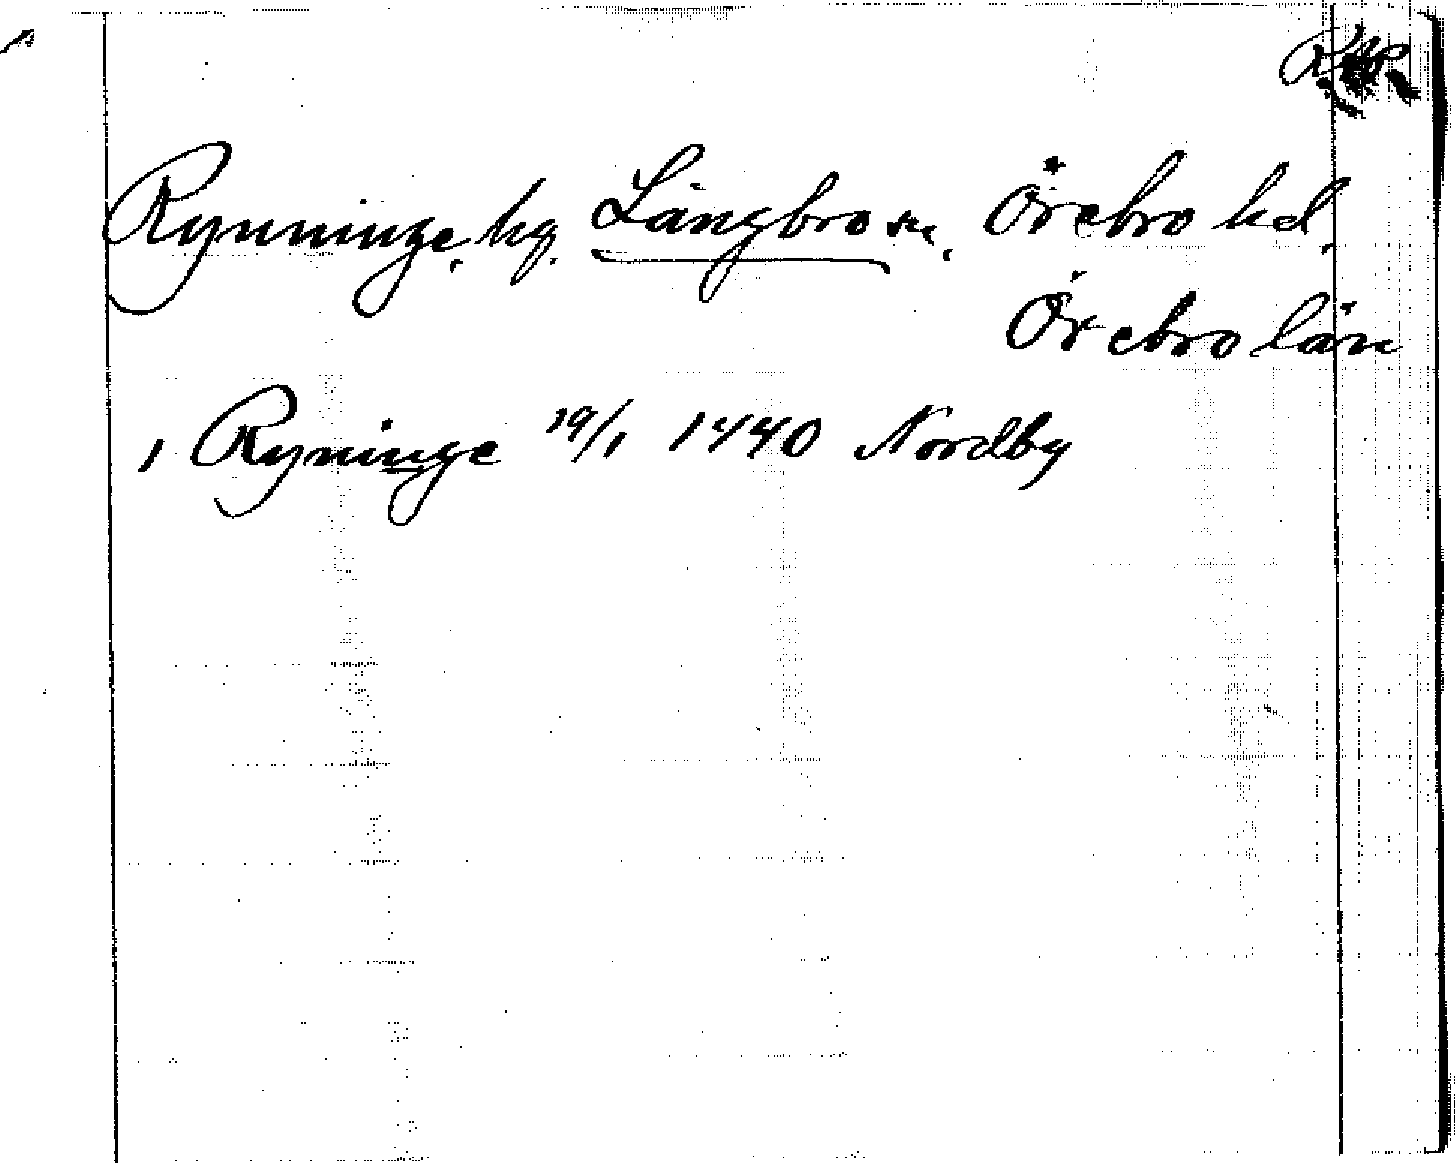 Rynninge, hg. Längbro sn, Örebro hd,
Örebro län
1 Ryninge 19/1 1440 Nordby